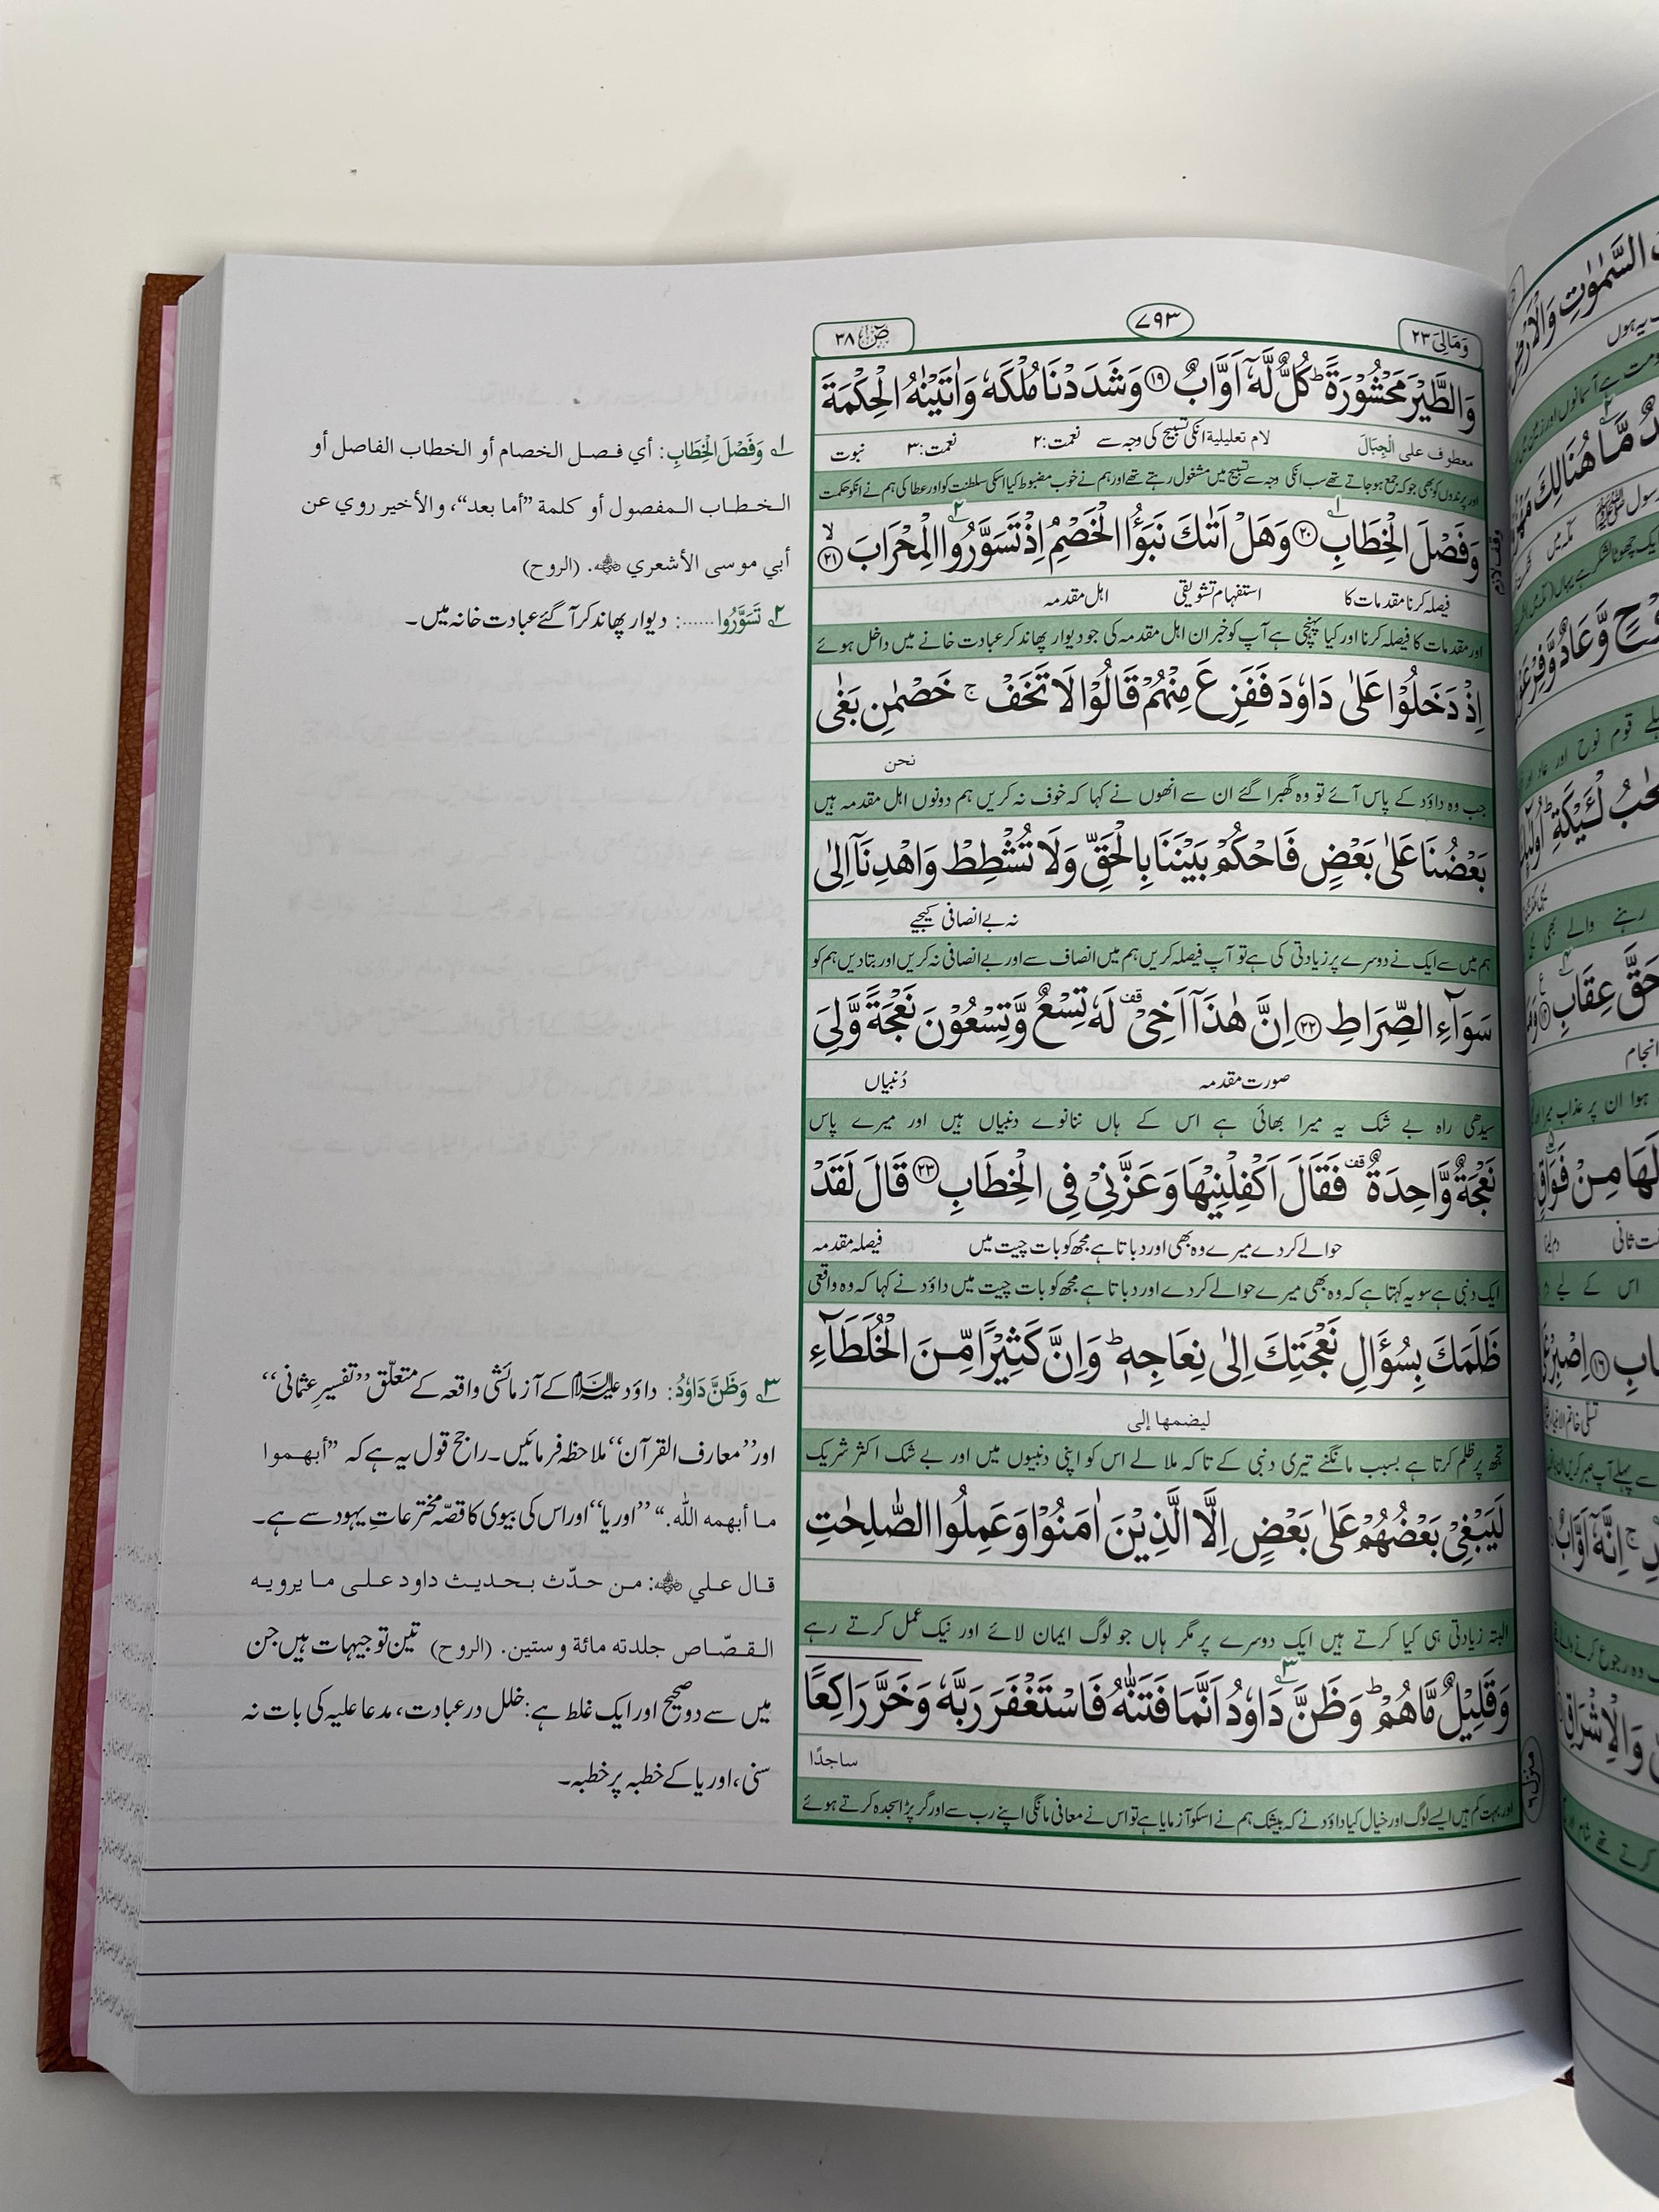 وَمَالِیَ ۲۳
۷۹۳
صٓ ۳۸
وَالطَّیْرَ مَحْشُوْرَةً ؕ کُلٌّ لَّهٗۤ اَوَّابٌ ۱۹ وَشَدَدْنَا مُلْکَهٗ وَاٰتَیْنٰهُ الْحِکْمَةَ
معطوف علی الْجِبَالَ لام تعلیلیة انکی تسبیح کی وجہ سے نعمت:۲ نعمت:۳ نبوت
اور پرندوں کو بھی جو کہ جمع ہو جاتے تھے سب انکی وجہ سے تسبیح میں مشغول رہتے تھے اور ہم نے خوب مضبوط کیا اسکی سلطنت کو اور عطا کی ہم نے انکو حکمت
وَفَصْلَ الْخِطَابِ ۱ ۲۰ وَهَلْ اَتٰىكَ نَبَؤُا الْخَصْمِ ۘ اِذْ تَسَوَّرُوا ۲ الْمِحْرَابَ ۲۱ ۙ
وقف لازم
فیصلہ کرنا مقدمات کا استفہام تشویقی اہل مقدمہ
اور مقدمات کا فیصلہ کرنا اور کیا پہنچی ہے آپ کو خبر ان اہل مقدمہ کی جو دیوار پھاند کر عبادت خانے میں داخل ہوئے
اِذْ دَخَلُوْا عَلٰی دَاوٗدَ فَفَزِعَ مِنْهُمْ قَالُوْا لَا تَخَفْ ۚ خَصْمٰنِ بَغٰی
نحن
جب وہ داؤد کے پاس آئے تو وہ گھبرا گئے ان سے انھوں نے کہا کہ خوف نہ کریں ہم دونوں اہل مقدمہ ہیں
بَعْضُنَا عَلٰی بَعْضٍ فَاحْکُمْ بَیْنَنَا بِالْحَقِّ وَلَا تُشْطِطْ وَاهْدِنَاۤ اِلٰی
نہ بے انصافی کیجیے
ہم میں سے ایک نے دوسرے پر زیادتی کی ہے تو آپ فیصلہ کریں ہم میں انصاف سے اور بے انصافی نہ کریں اور بتا دیں ہم کو
سَوَآءِ الصِّرَاطِ ۲۲ اِنَّ هٰذَاۤ اَخِیْ ۫ لَهٗ تِسْعٌ وَّتِسْعُوْنَ نَعْجَةً وَّلِیَ
صورت مقدمہ دُنبیاں
سیدھی راہ بے شک یہ میرا بھائی ہے اس کے ہاں ننانوے دنبیاں ہیں اور میرے پاس
نَعْجَةٌ وَّاحِدَةٌ ۫ فَقَالَ اَکْفِلْنِیْهَا وَعَزَّنِیْ فِی الْخِطَابِ ۲۳ قَالَ لَقَدْ
حوالے کر دے میرے وہ بھی اور دباتا ہے مجھ کو بات چیت میں فیصلہ مقدمہ
ایک دنبی ہے سو یہ کہتا ہے کہ وہ بھی میرے حوالے کر دے اور دباتا ہے مجھ کو بات چیت میں داؤد نے کہا کہ وہ واقعی
ظَلَمَكَ بِسُؤَالِ نَعْجَتِكَ اِلٰی نِعَاجِهٖ ؕ وَاِنَّ کَثِیْرًا مِّنَ الْخُلَطَآءِ
لیضمها إلی
تجھ پر ظلم کرتا ہے بسبب مانگنے تیری دنبی کے تاکہ ملا لے اس کو اپنی دنبیوں میں اور بے شک اکثر شریک
لَیَبْغِیْ بَعْضُهُمْ عَلٰی بَعْضٍ اِلَّا الَّذِیْنَ اٰمَنُوْا وَعَمِلُوا الصّٰلِحٰتِ
البتہ زیادتی ہی کیا کرتے ہیں ایک دوسرے پر مگر ہاں جو لوگ ایمان لائے اور نیک عمل کرتے رہے
وَقَلِیْلٌ مَّا هُمْ ؕ وَظَنَّ دَاوٗدُ ۳ اَنَّمَا فَتَنّٰهُ فَاسْتَغْفَرَ رَبَّهٗ وَخَرَّ رَاکِعًا
ساجدًا
اور بہت کم ہیں ایسے لوگ اور خیال کیا داؤد نے کہ بیشک ہم نے اسکو آزمایا ہے تو اس نے معافی مانگی اپنے رب سے اور گر پڑا سجدہ کرتے ہوئے
منزل ۶
۱ وَفَصْلَ الْخِطَابِ: أي فصل الخصام أو الخطاب الفاصل أو
الخطاب المفصول أو كلمة “أما بعد”، والأخير روي عن
أبي موسى الأشعري ؓ. (الروح)
۲ تَسَوَّرُوا......: دیوار پھاند کر آ گئے عبادت خانہ میں۔
۳ وَظَنَّ دَاوٗدُ: داؤد علیہ السلام کے آزمائشی واقعہ کے متعلّق “تفسیر عثمانی”
اور “معارف القرآن” ملاحظہ فرمائیں۔ راجح قول یہ ہے کہ “أبهموا
ما أبهمه الله.” “اوریا” اور اس کی بیوی کا قصّہ مخترعاتِ یہود سے ہے۔
قال علي ؓ: من حدّث بحديث داود على ما يرويه
القصّاص جلدته مائة وستين. (الروح) تین توجیہات ہیں جن
میں سے دو صحیح اور ایک غلط ہے: خلل در عبادت، مدعا علیہ کی بات نہ
سنی، اوریا کے خطبہ پر خطبہ۔